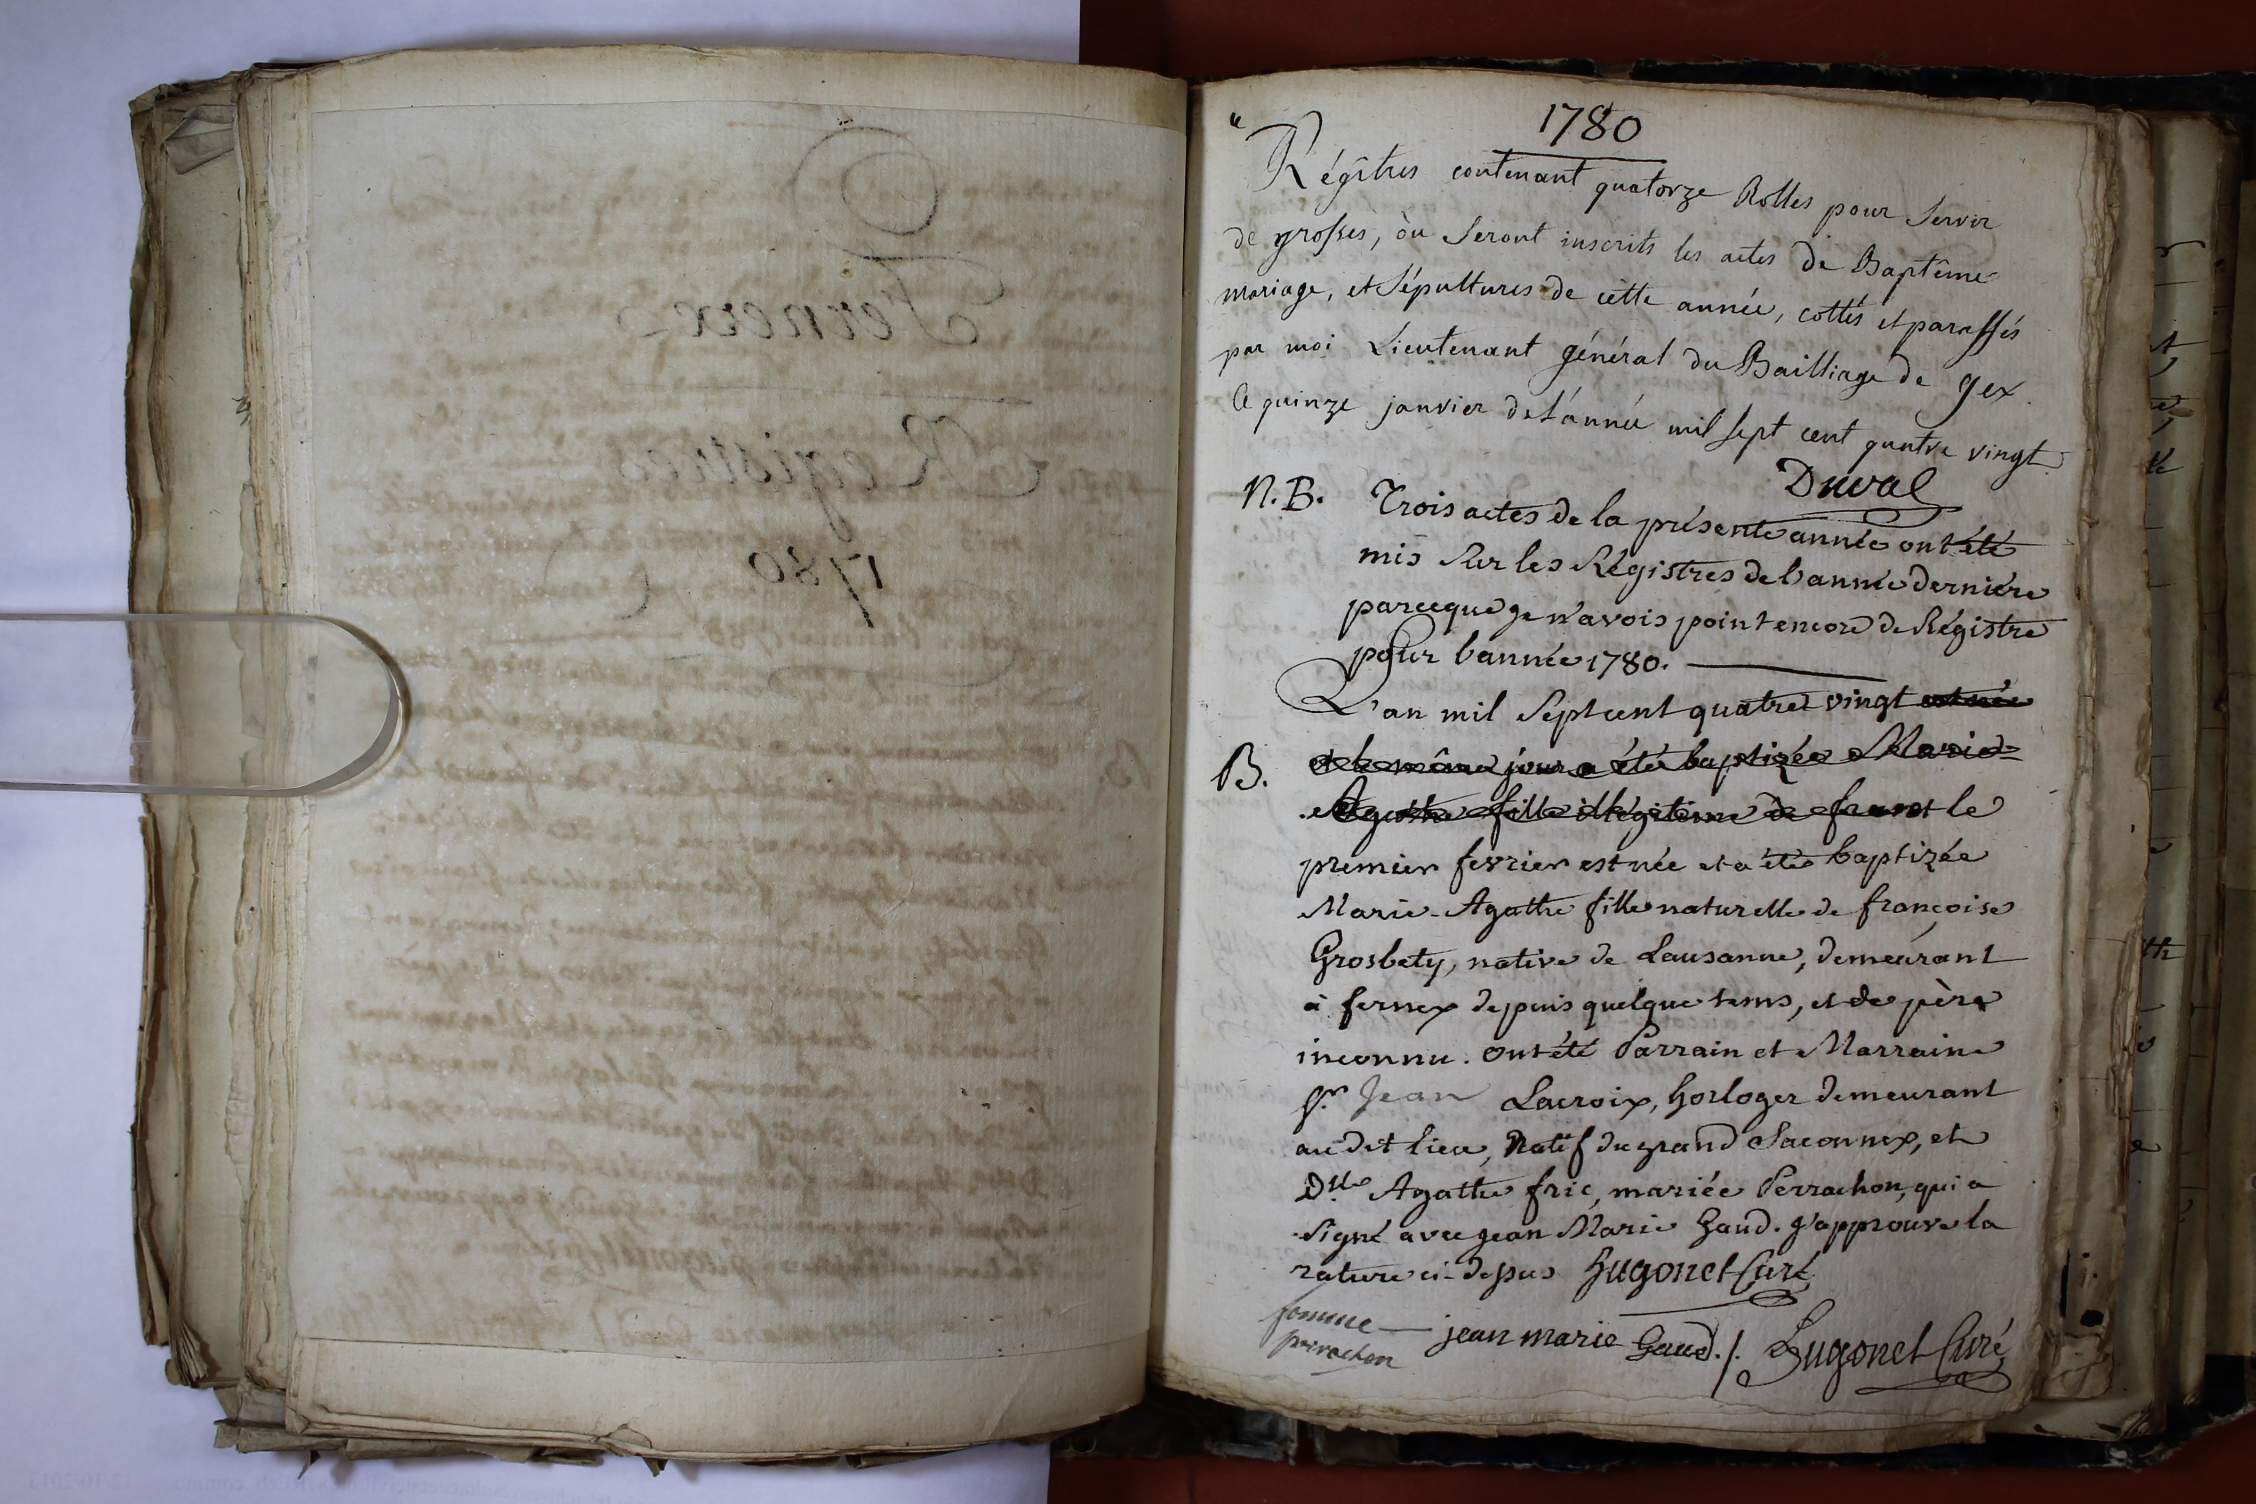 Fernex
Registres
1780
1780
Régîtres contenant quatorze Rolles pour Servir
de grosses, òu Seront inscrits les actes de Baptême
mariage, et Sépultures de cette année, cottés et paraffés
par moi Lieutenant général du Bailliage de gex
le quinze janvier de l'année mil Sept cent quatre vingt
Duval
N.B. Trois actes de la présente année ont été
mis Sur les Régistres de l'année derniére
parceque je n'avois point encore de Régistre
pour l'année 1780.
L'an mil Sept cent quatre vingt est née
B. et le même jour a été baptizée Marie=
Agathe fille illégitime de le
premier fevrier est née et a été baptizée
Marie-Agathe fille naturelle de françoise
Grosbety, native de Lausanne, demeurant
à fernex depuis quelque tems, et de père
inconnu. ont été Parrain et Marraine
Sr. Jean Lacroix, horloger demeurant
au dit lieu, Natif du grand Saconnex, et
Dlle Agathe fric, mariée Perrachon, qui a
Signé avec jean Marie Gaud. J'approuve la
rature ci-dessus Hugonet Curé
femme
perrachon
jean marie Gaud./. Hugonet Curé